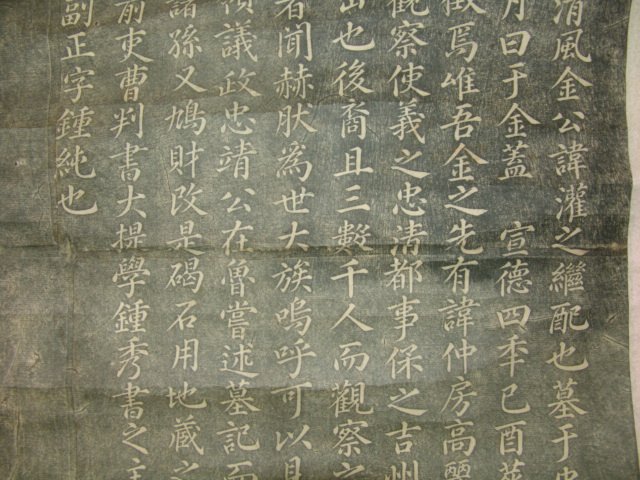 清風金公諱灌之繼配也墓于忠
月曰于金蓋　宣德四年己酉葬
徵焉唯吾金之先有諱仲房高麗
觀察使義之忠清都事保之吉州
出也後裔且三數千人而觀察之
者聞赫肰為世大族嗚呼可以見
議政忠靖公在魯嘗述墓記而
諸孫又鳩財改是碣石用地藏之
前吏曹判書大提學鍾秀書之
副正字鍾純也